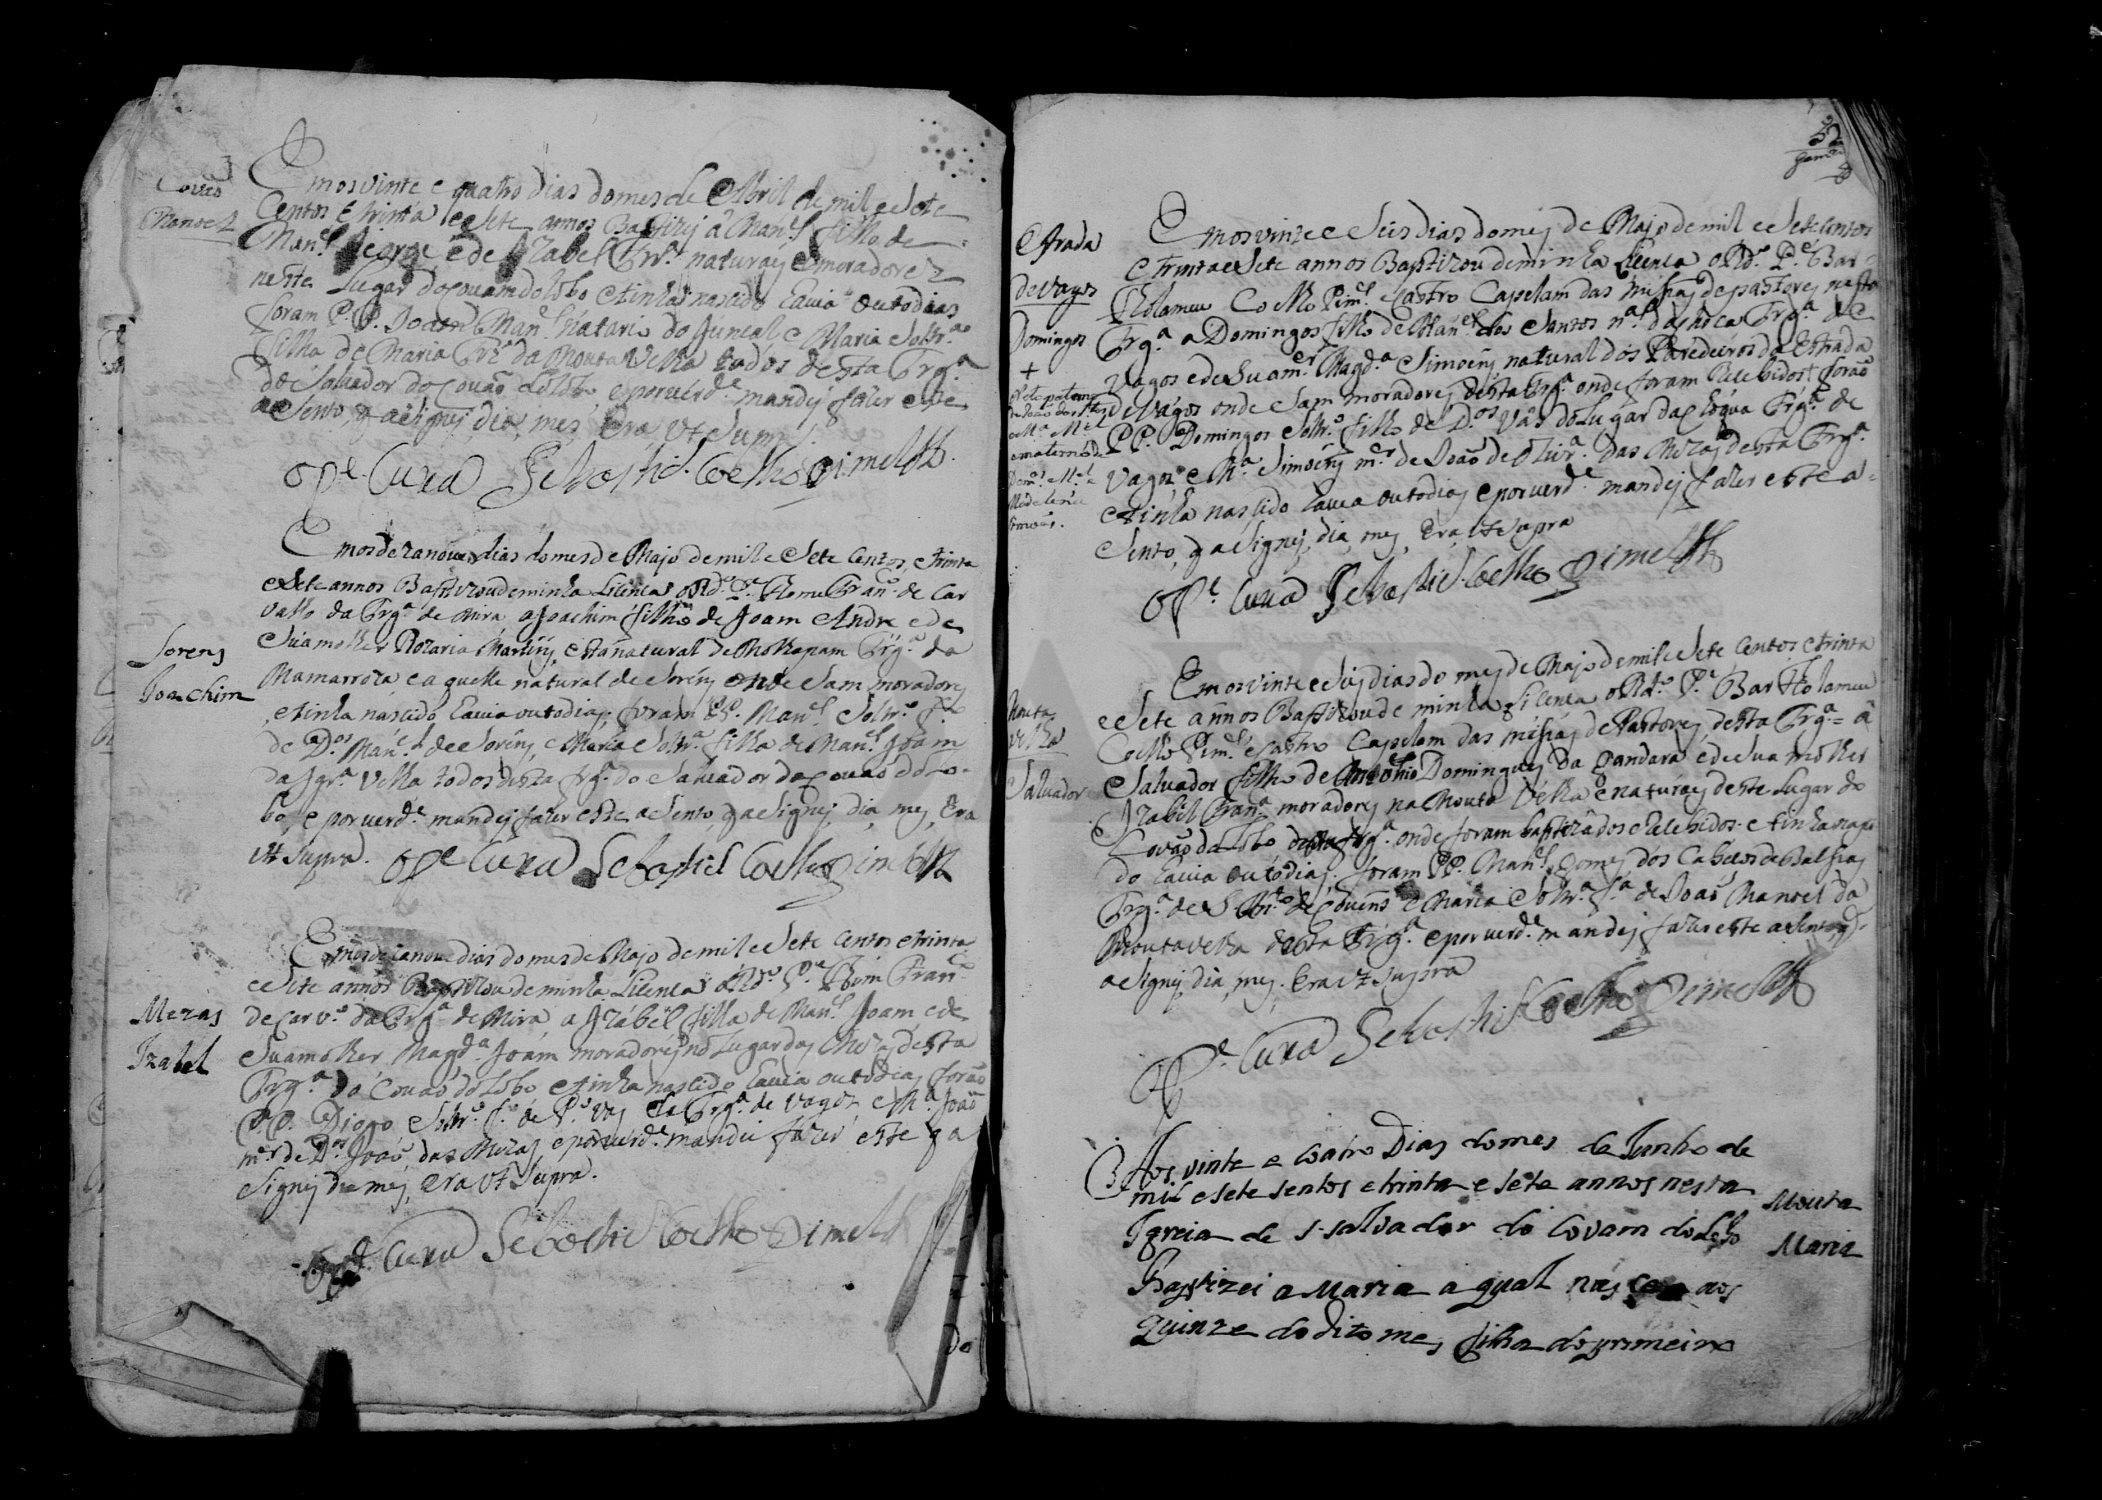 Covão
Manoel
Em os vinte e quatro dias do mes de Abril de mil e Sete
Centos e trinta e Sete annos Baptizej a Man.el filho de
Man.el George e de Izabel Frr.ª naturaej e moradorez
neste Lugar do Couam do lobo e tinha nascido hauia outo dias
foram P.P. Man.el do Juncal e Maria Soltr.ª
filha de Maria Frz da Mouta Velha todos desta Frg.ª
do Saluador do Couão do Lobo e por uerd.e mandej fazer este
a Sento, q aSignej dia, mes, Era, Vt Supr.
O P.e Cura Sebastiã Coelho Pimentel
Em os dezanoue dias do mes de Majo de mil e Sete Centos, e trinta
e Sete annos Baptizou de minha Licenca o Rd.o P.e Fran.co de Car
valho da Frg.ª de Mira a Joachim filho de Joam Andre e de
Sua molher Rozaria Martinz, esta natural de da Frg.ª da
Mamarroza, e a quelle natural de Sorenz onde Sam moradorej
e tinha nascido hauia outo dias; foram P.P. Man.el Soltr.o f.o
de D.os Man.el de Sorenz, e Maria Soltr.ª filha de Man.el Joam
da Igr.ª Velha todos desta frg.ª do Saluador do Couão do Lo-
bo, e por uerd.e mandej fazer este a Sento, q aSignej, dia, mej, Era
Vt Supra. O P.e Cura Sebastiã Coelho Pimentel
Sorenz
Joachim
Em os dezanoue dias do mes de Majo de mil e Sete Centos e trinta
e Sete annos Baptizou de minha Licenca o Rd.o P.e Fran.co
de Carv.o da Frg.ª de Mira a Izabel filha de Man.el Joam e de
Sua molher Magd.ª Joam moradorej no Lugar das Mezas desta
Frg.ª do Couão do Lobo e tinha nascido hauia outo dias forão
P.P. Diogo Soltr.o f.o de P.o Vaz da Frg.ª de Vagoz e M.ª João
m.er de D.os João das Mezas, e por uerd.e mandei fazer este q a
Signej dia mej, Era Vt Supra.
Mezas
Izabel
O P.e Cura Sebastiã Coelho Pimentel
do
Estrada
de Vagos
Domingos
+
Em os vinte e Seis dias do mej de Majo de mil e Sete Centos
e trinta e Sete annos Baptizou de minha Licenca o Rd.o P.e Bar-
tholameu Coelho Pim.el e Castro Capelam das missaj de pastorej nesta
Frg.ª a Domingos filho de Man.el dos Santos n.al da Frg.ª de
Vagos e de Sua m.er Magd.ª Simoenz natural dos Paredeiros da Estrada
de Vagos onde Sam moradorej desta Frg.ª onde foram Recebidos e forão
P.P. Domingos Soltr.o filho de D.os Vas do Lugar da Frg.ª de
Vagoz e M.ª Simoenz m.er de João de Oliur.ª das Mezas desta Frg.ª
e tinha nascido hauia outo dias e por uerd.e mandej fazer este a-
Sento, q aSignej, dia, mej, Era, Vt Supra
O P.e Cura Sebastiã Coelho Pimentel
Mouta
Velha
Saluador
Em os vinte e Seis dias do mej de Majo de mil e Sete Centos e trinta
e Sete annos Baptizou de minha Licenca o Rd.o P.e Bartholameu
Coelho Pim.el e Castro Capelam das missaj de Pastorej, desta Frg.ª a
Saluador filho de Antonio Dominguej da Gandara e de Sua molher
Izabel Fran.ca moradorej na Mouta Velha e naturaej deste Lugar do
Couão do Lobo desta frg.ª onde foram baptizados e Recebidos e tinha nasci
do hauia outo dias. foram P.P. Man.el Gomes dos Cabecos de
Frg.ª de e Maria Soltr.ª f.ª de João Manoel da
Mouta Velha desta Frg.ª e por uerd.e mandej fazer este a Sento q
aSignej, dia, mej, Era Vt Supra
O P.e Cura Sebastiã Coelho Pimentel
Aos vinte e coatro Dias do mes de Junho de
mil e sete sentos e trinta e sete annos nesta
Igreia de S. Salvador do Covam do Lobo
Baptizei a Maria a qual nasceo aos
quinze do dito mes filha do primeiro
Mouta
Maria